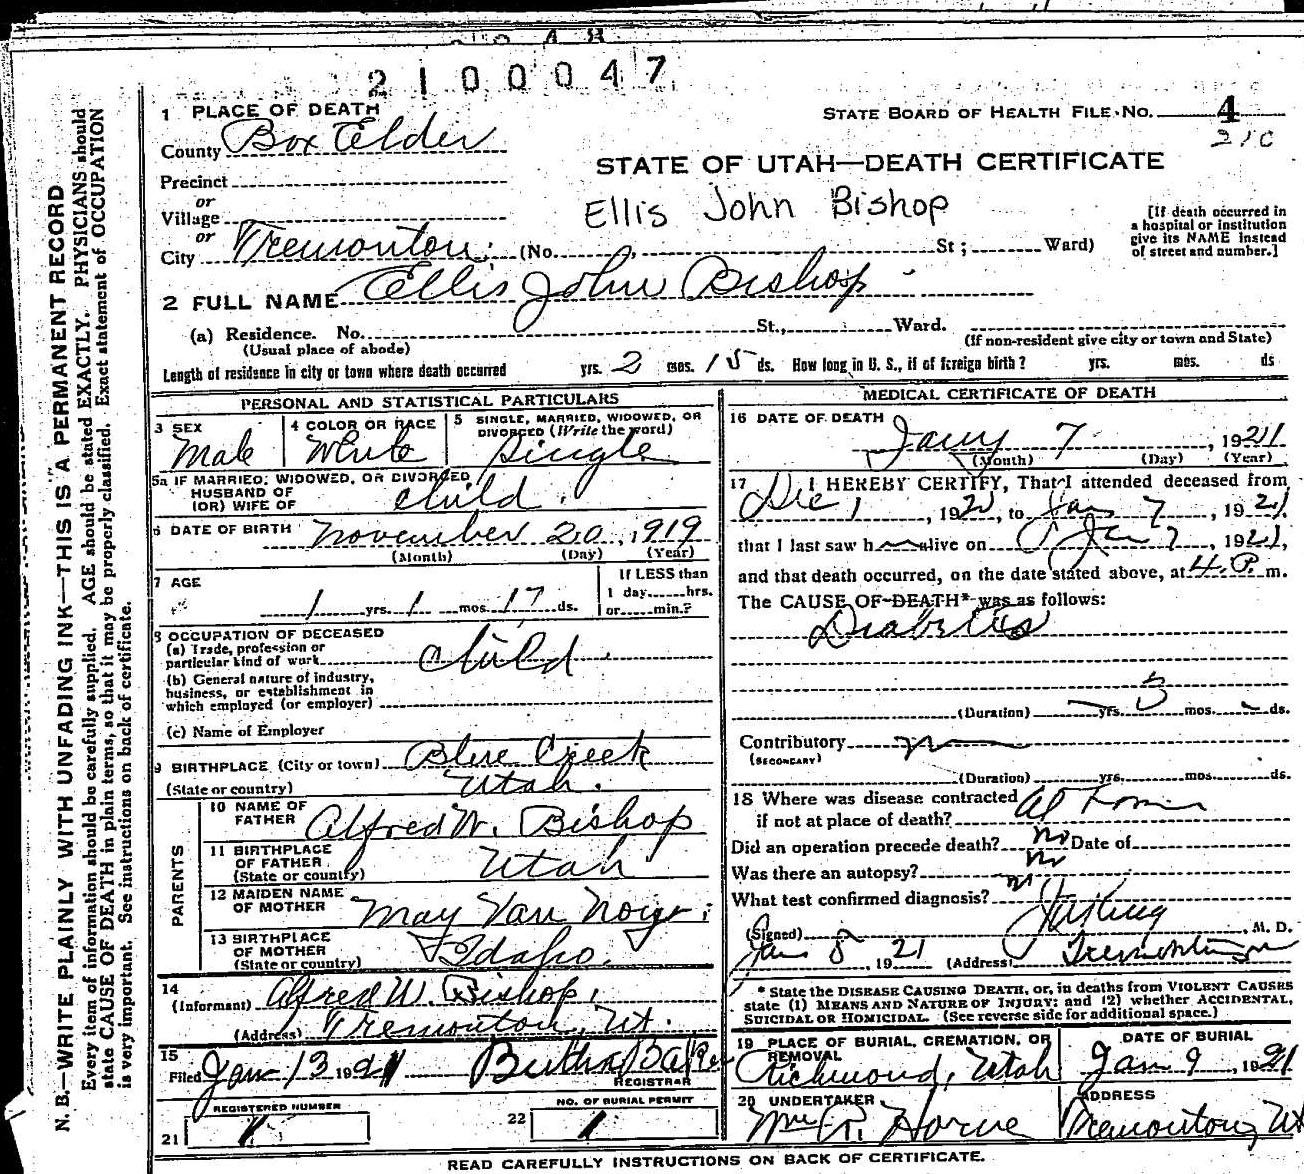 2100047
1 PLACE OF DEATH
STATE BOARD OF HEALTH FILE NO. 4
210
County Box Elder
STATE OF UTAH—DEATH CERTIFICATE
Precinct
or
Village
Ellis John Bishop
[If death occurred in
a hospital or institution
give its NAME instead
of street and number.]
or
City Tremonton (No. St; Ward)
2 FULL NAME Ellis John Bishop
(a) Residence. No. St., Ward.
(Usual place of abode) (If non-resident give city or town and State)
Length of residence in city or town where death occurred yrs. 2 mos. 15 ds. How long in U. S., if of foreign birth? yrs. mos. ds
PERSONAL AND STATISTICAL PARTICULARS
3 SEX Male
4 COLOR OR RACE White
5 SINGLE, MARRIED, WIDOWED, OR
DIVORCED (Write the word)
Single
5a IF MARRIED, WIDOWED, OR DIVORCED
HUSBAND OF
(OR) WIFE OF child
6 DATE OF BIRTH November 20, 1919
(Month) (Day) (Year)
7 AGE
1 yrs. 1 mos. 17 ds.
If LESS than
1 day hrs.
or min.?
8 OCCUPATION OF DECEASED
(a) Trade, profession or
particular kind of work child
(b) General nature of industry,
business, or establishment in
which employed (or employer)
(c) Name of Employer
9 BIRTHPLACE (City or town) Blue Creek
(State or country) Utah.
PARENTS
10 NAME OF
FATHER Alfred W. Bishop
11 BIRTHPLACE
OF FATHER
(State or country) Utah
12 MAIDEN NAME
OF MOTHER May Van Noy
13 BIRTHPLACE
OF MOTHER
(State or country) Idaho.
14
(Informant) Alfred W. Bishop,
(Address) Tremonton, Ut.
15
Filed Jan 13 1921
REGISTRAR
REGISTERED NUMBER
21 1
22 NO. OF BURIAL PERMIT
1
MEDICAL CERTIFICATE OF DEATH
16 DATE OF DEATH
Jany 7, 1921
(Month) (Day) (Year)
17 I HEREBY CERTIFY, That I attended deceased from
Dec 1, 1920, to Jan 7, 1921,
that I last saw h alive on Jan 7, 1921,
and that death occurred, on the date stated above, at 4 P. m.
The CAUSE OF DEATH* was as follows:
Diabetes
(Duration) yrs. 3 mos. ds.
Contributory
(SECONDARY)
(Duration) yrs. mos. ds.
18 Where was disease contracted
if not at place of death? at home
Did an operation precede death? no Date of
Was there an autopsy? no
What test confirmed diagnosis?
(Signed) M. D.
Jan 8 1921 (Address) Tremonton
* State the DISEASE CAUSING DEATH, or, in deaths from VIOLENT CAUSES
state (1) MEANS AND NATURE OF INJURY; and (2) whether ACCIDENTAL,
SUICIDAL OR HOMICIDAL. (See reverse side for additional space.)
19 PLACE OF BURIAL, CREMATION, OR
REMOVAL
Richmond, Utah
DATE OF BURIAL
Jan 9, 1921
20 UNDERTAKER
Wm R. Horne
ADDRESS
Tremonton, Ut
READ CAREFULLY INSTRUCTIONS ON BACK OF CERTIFICATE.
N. B.—WRITE PLAINLY WITH UNFADING INK—THIS IS A PERMANENT RECORD
Every item of information should be carefully supplied. AGE should be stated EXACTLY. PHYSICIANS should
state CAUSE OF DEATH in plain terms, so that it may be properly classified. Exact statement of OCCUPATION
is very important. See instructions on back of certificate.